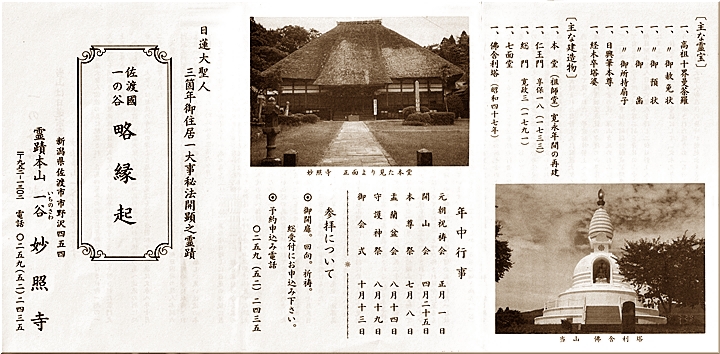 〔主な霊宝〕
一、高祖十界曼荼羅
一、〃 御赦免状
一、〃 御預状
一、〃 御出
一、〃 御所持扇子
一、日興筆本尊
一、経木卒塔婆
〔主な建造物〕
一、本堂(祖師堂) 寛永年間の再建
一、仁王門 享保一八(一七三三)
一、総門 寛政三(一七九一)
一、七面堂
一、佛舎利塔(昭和四十七年)
当山 佛舎利塔
妙照寺 正面より見た本堂
年中行事
元朝祝祷会 正月一日
開山会 四月二十五日
本尊祭 七月八日
盂蘭盆会 八月十四日
守護神祭 八月十九日
御会式 十月十三日
※
参拝について
◎御開扉。回向。祈祷。
総受付にお申込み下さい。
◎予約申込み電話
〇二五九(五二)二四三五
日蓮大聖人
三箇年御住居一大事秘法開顕之霊蹟
佐渡國
一の谷
略縁起
新潟県佐渡市市野沢四五四
霊蹟本山 一谷 妙照寺
いちのさわ
電話 〇二五九(五二)二四三五